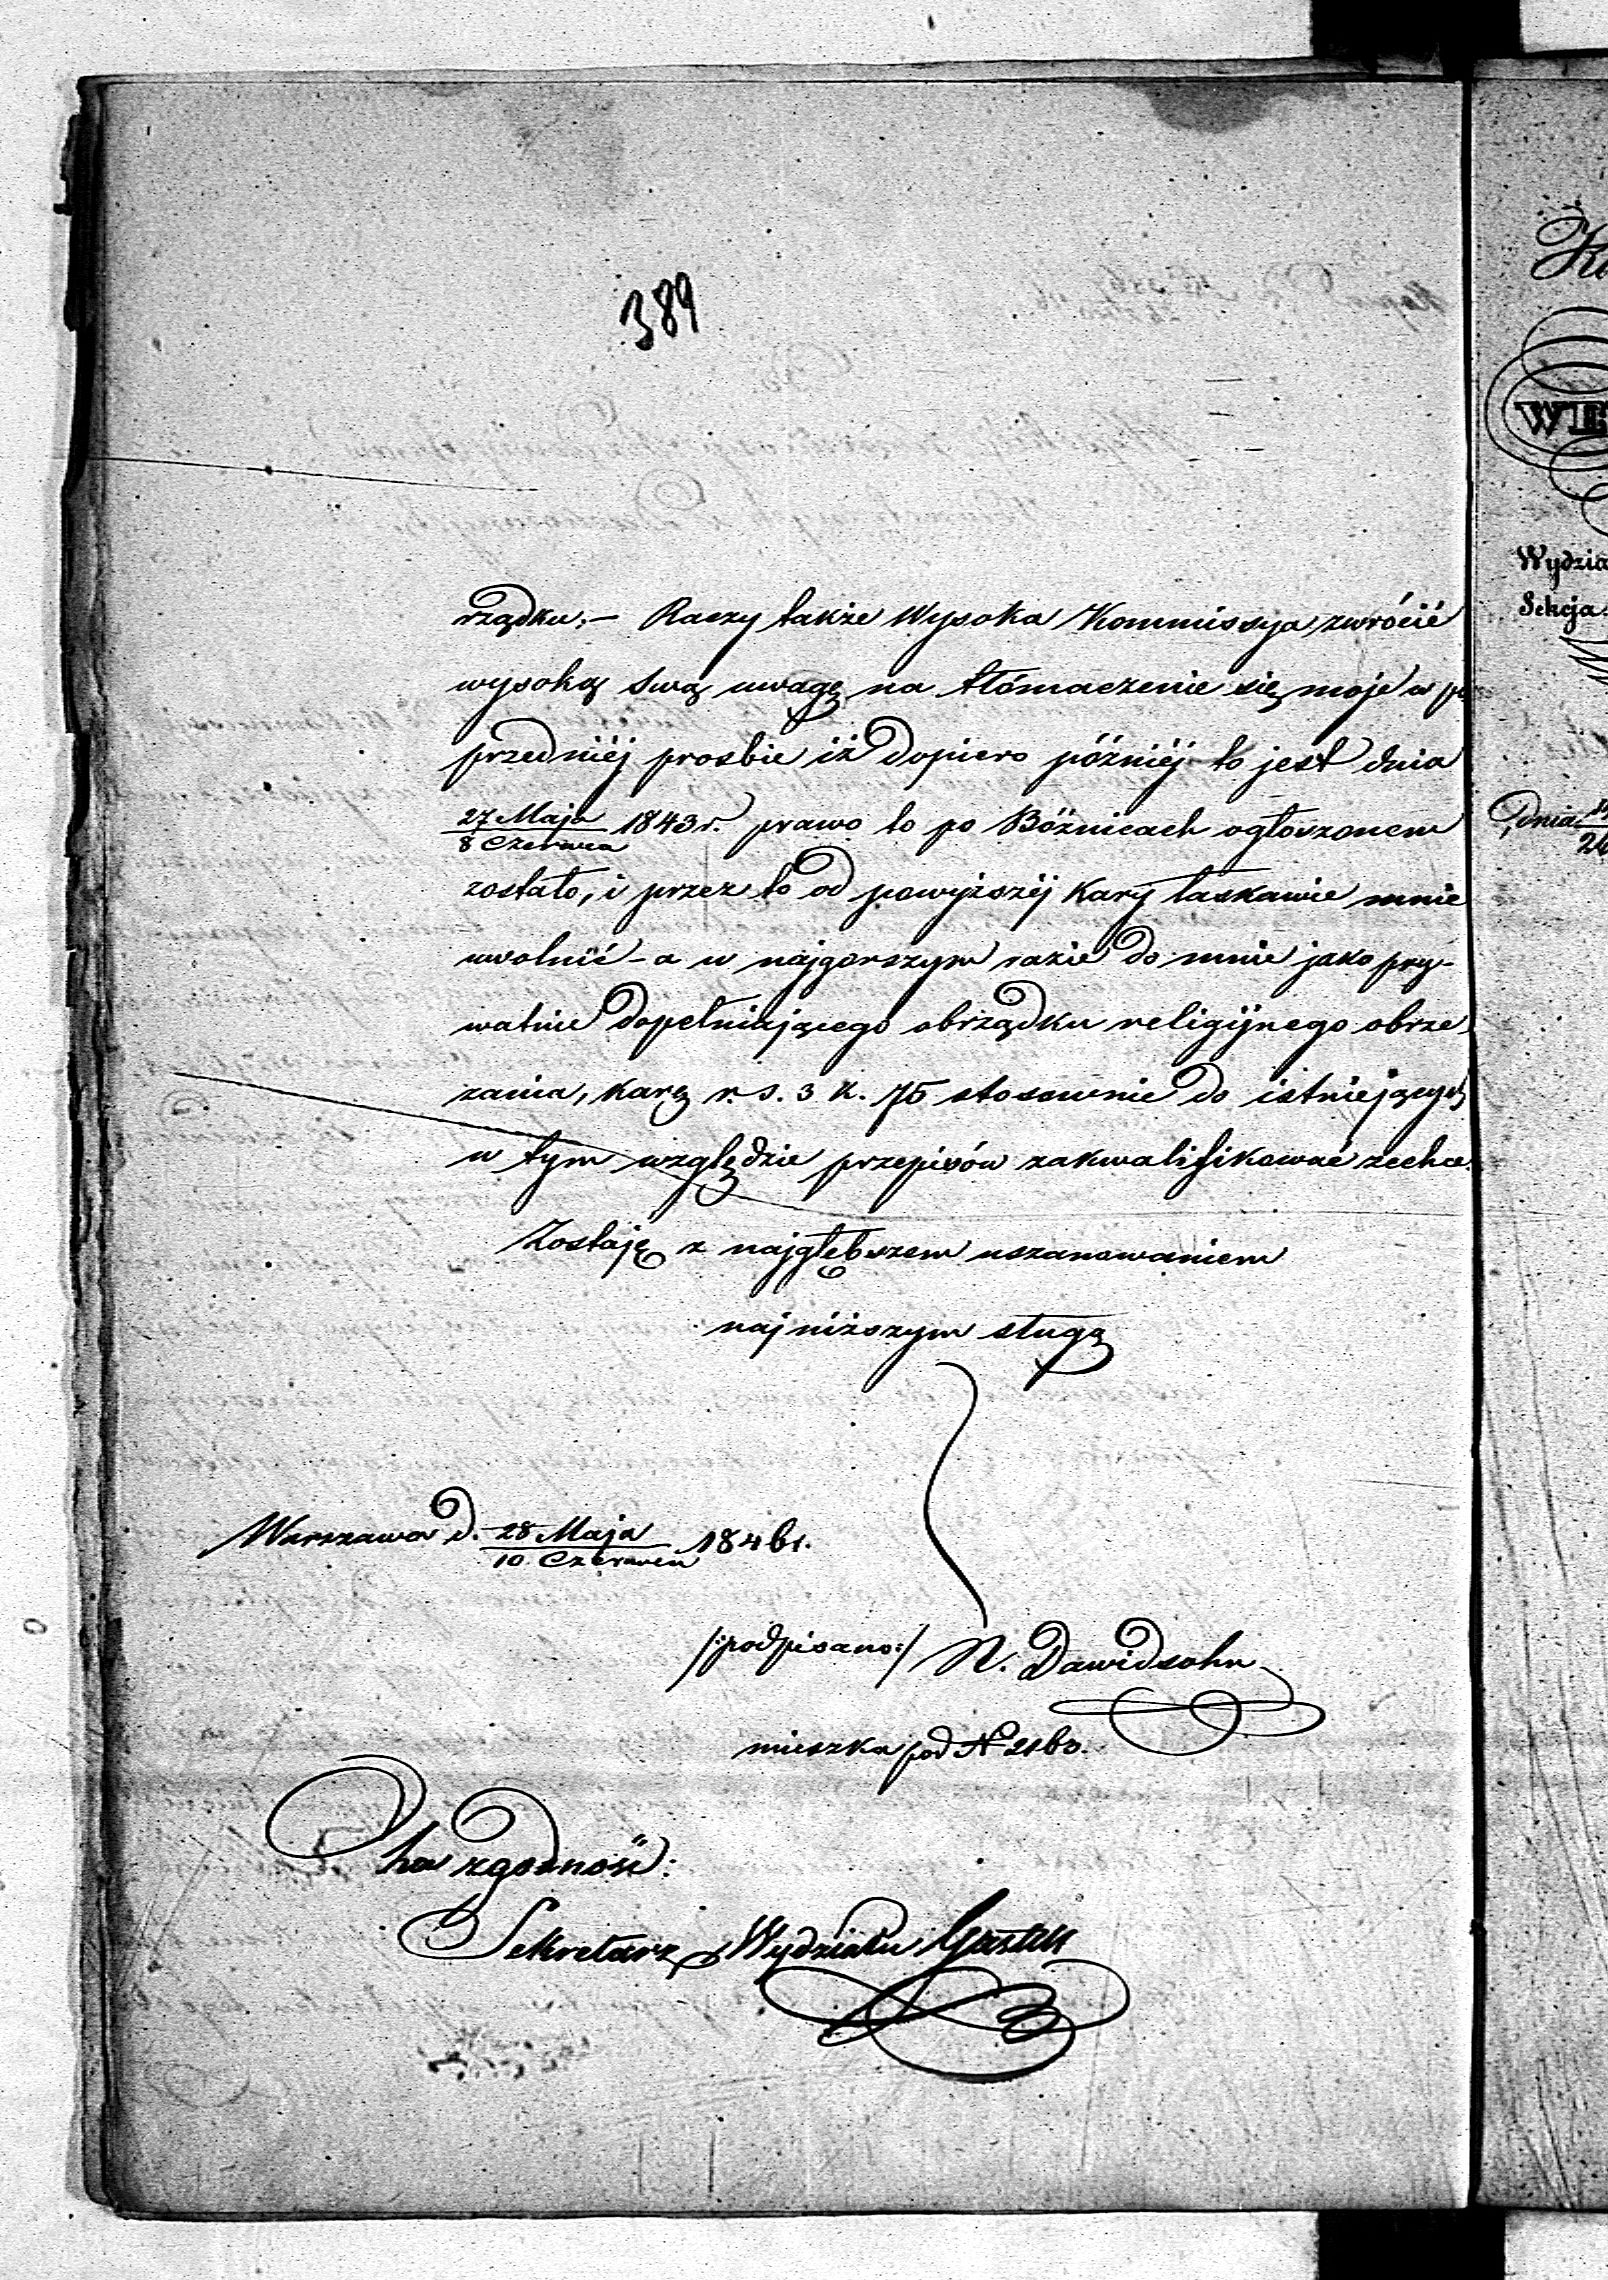 389
rządku; — Raczy także Wysoka Kommissya zwrócić
wysoką swą uwagę na tłómaczenie się moje w po
przedniéj prosbie iż dopiero późniéj to jest dnia
27 Maja / 8 Czerwca 1843 r. prawo to po Bóżnicach ogłoszonem
zostało, i przez to od powyższéj Kary łaskawie mnie
uwolnić – a w najgorszym razie do mnie jako pry-
watnie dopełniającego obrządku religijnego obrze-
zania, karę r. s. 3 k. 75 stosownie do istniejących
w tym względzie przepisów zakwalifikować zechce.
Zostaję z najgłębszem uszanowaniem
najniższym sługą
Warszawa d. 28 Maja / 10 Czerwca 1846 r.
/:podpisano:/ N. Dawidsohn
mieszka pod N 2163.
Za zgodność:
Sekretarz Wydziału
Wydzia
Sekcja
Dnia